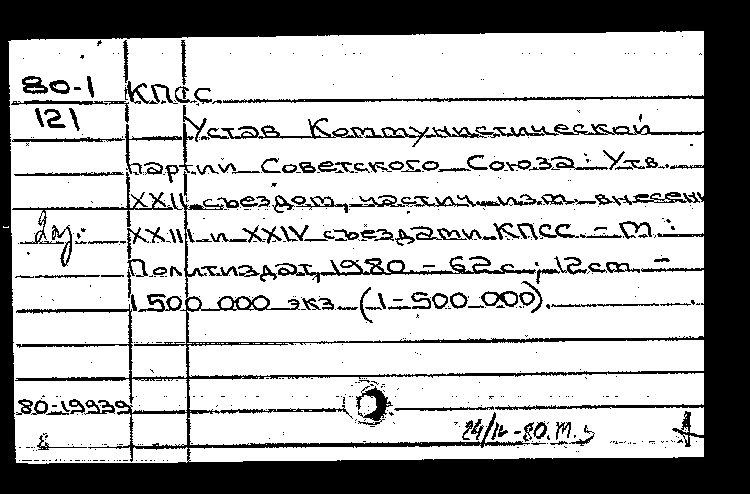 80-1
121
КПСС
Устав Коммунистической
партии Советского Союза: Утв.
XXII съездом, частич. изм. внесены
XXIII и XXIV съездами КПСС. – М.:
Политиздат, 1980. – 62 с.; 12 см. –
1500 000 экз. (1–500 000).
80-19939
8